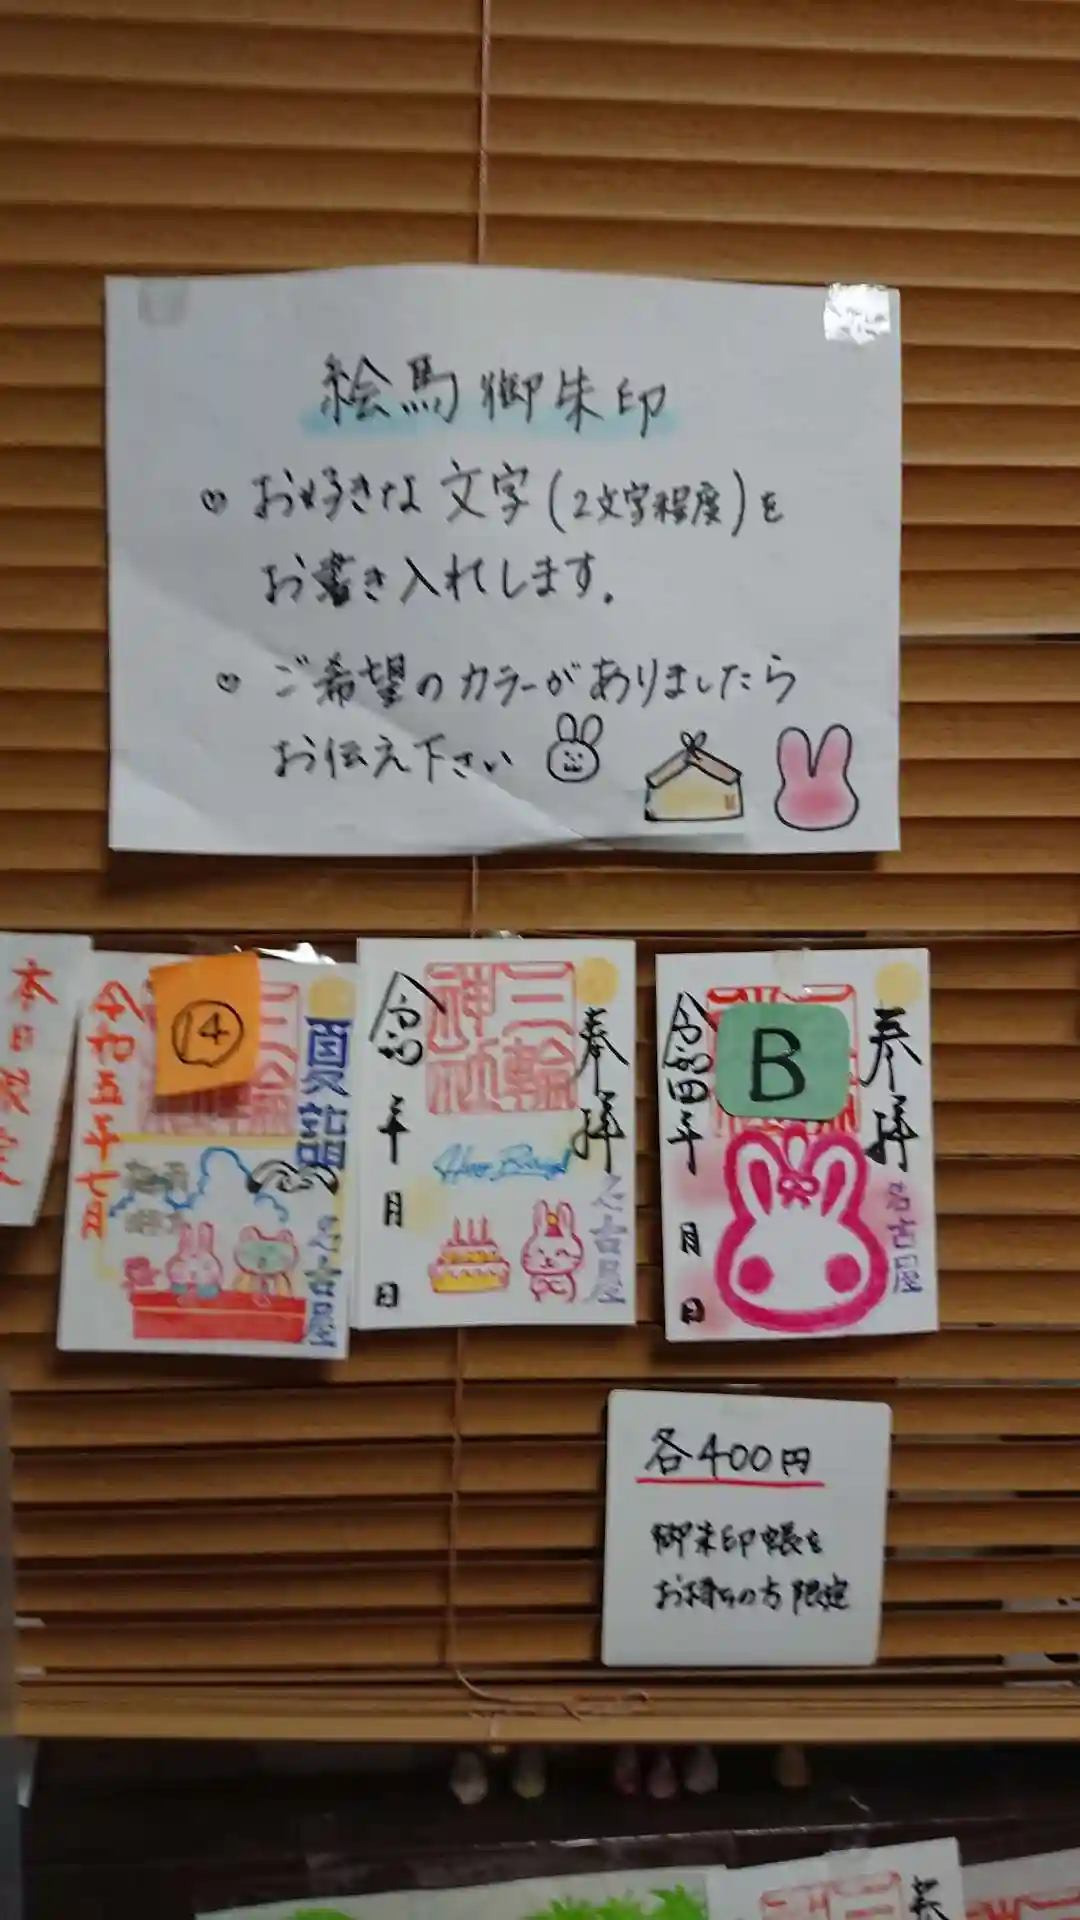 絵馬御朱印
♡ お好きな文字(2文字程度)を
お書き入れします。
♡ ご希望のカラーがありましたら
お伝え下さい
本日限定
⑭
令和五年七月
三輪神社
夏詣
名古屋
奉拝
三輪神社
令和 年 月 日
名古屋
B
奉拝
令和四年 月 日
名古屋
各400円
御朱印帳を
お持ちの方限定